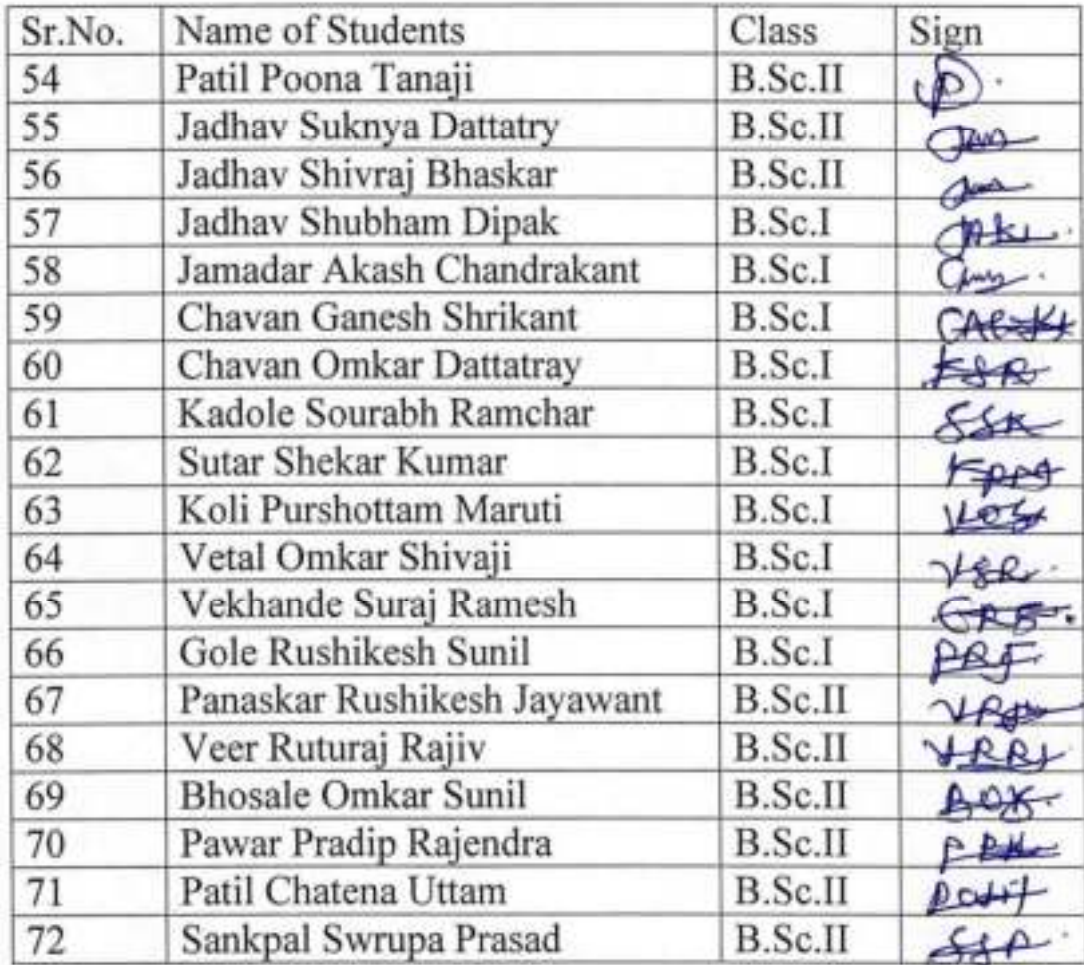 Sr.No. Name of Students Class Sign
54 Patil Poona Tanaji B.Sc.II
55 Jadhav Suknya Dattatry B.Sc.II
56 Jadhav Shivraj Bhaskar B.Sc.II
57 Jadhav Shubham Dipak B.Sc.I
58 Jamadar Akash Chandrakant B.Sc.I
59 Chavan Ganesh Shrikant B.Sc.I
60 Chavan Omkar Dattatray B.Sc.I
61 Kadole Sourabh Ramchar B.Sc.I SSK
62 Sutar Shekar Kumar B.Sc.I
63 Koli Purshottam Maruti B.Sc.I
64 Vetal Omkar Shivaji B.Sc.I
65 Vekhande Suraj Ramesh B.Sc.I
66 Gole Rushikesh Sunil B.Sc.I
67 Panaskar Rushikesh Jayawant B.Sc.II
68 Veer Ruturaj Rajiv B.Sc.II
69 Bhosale Omkar Sunil B.Sc.II
70 Pawar Pradip Rajendra B.Sc.II
71 Patil Chatena Uttam B.Sc.II
72 Sankpal Swrupa Prasad B.Sc.II